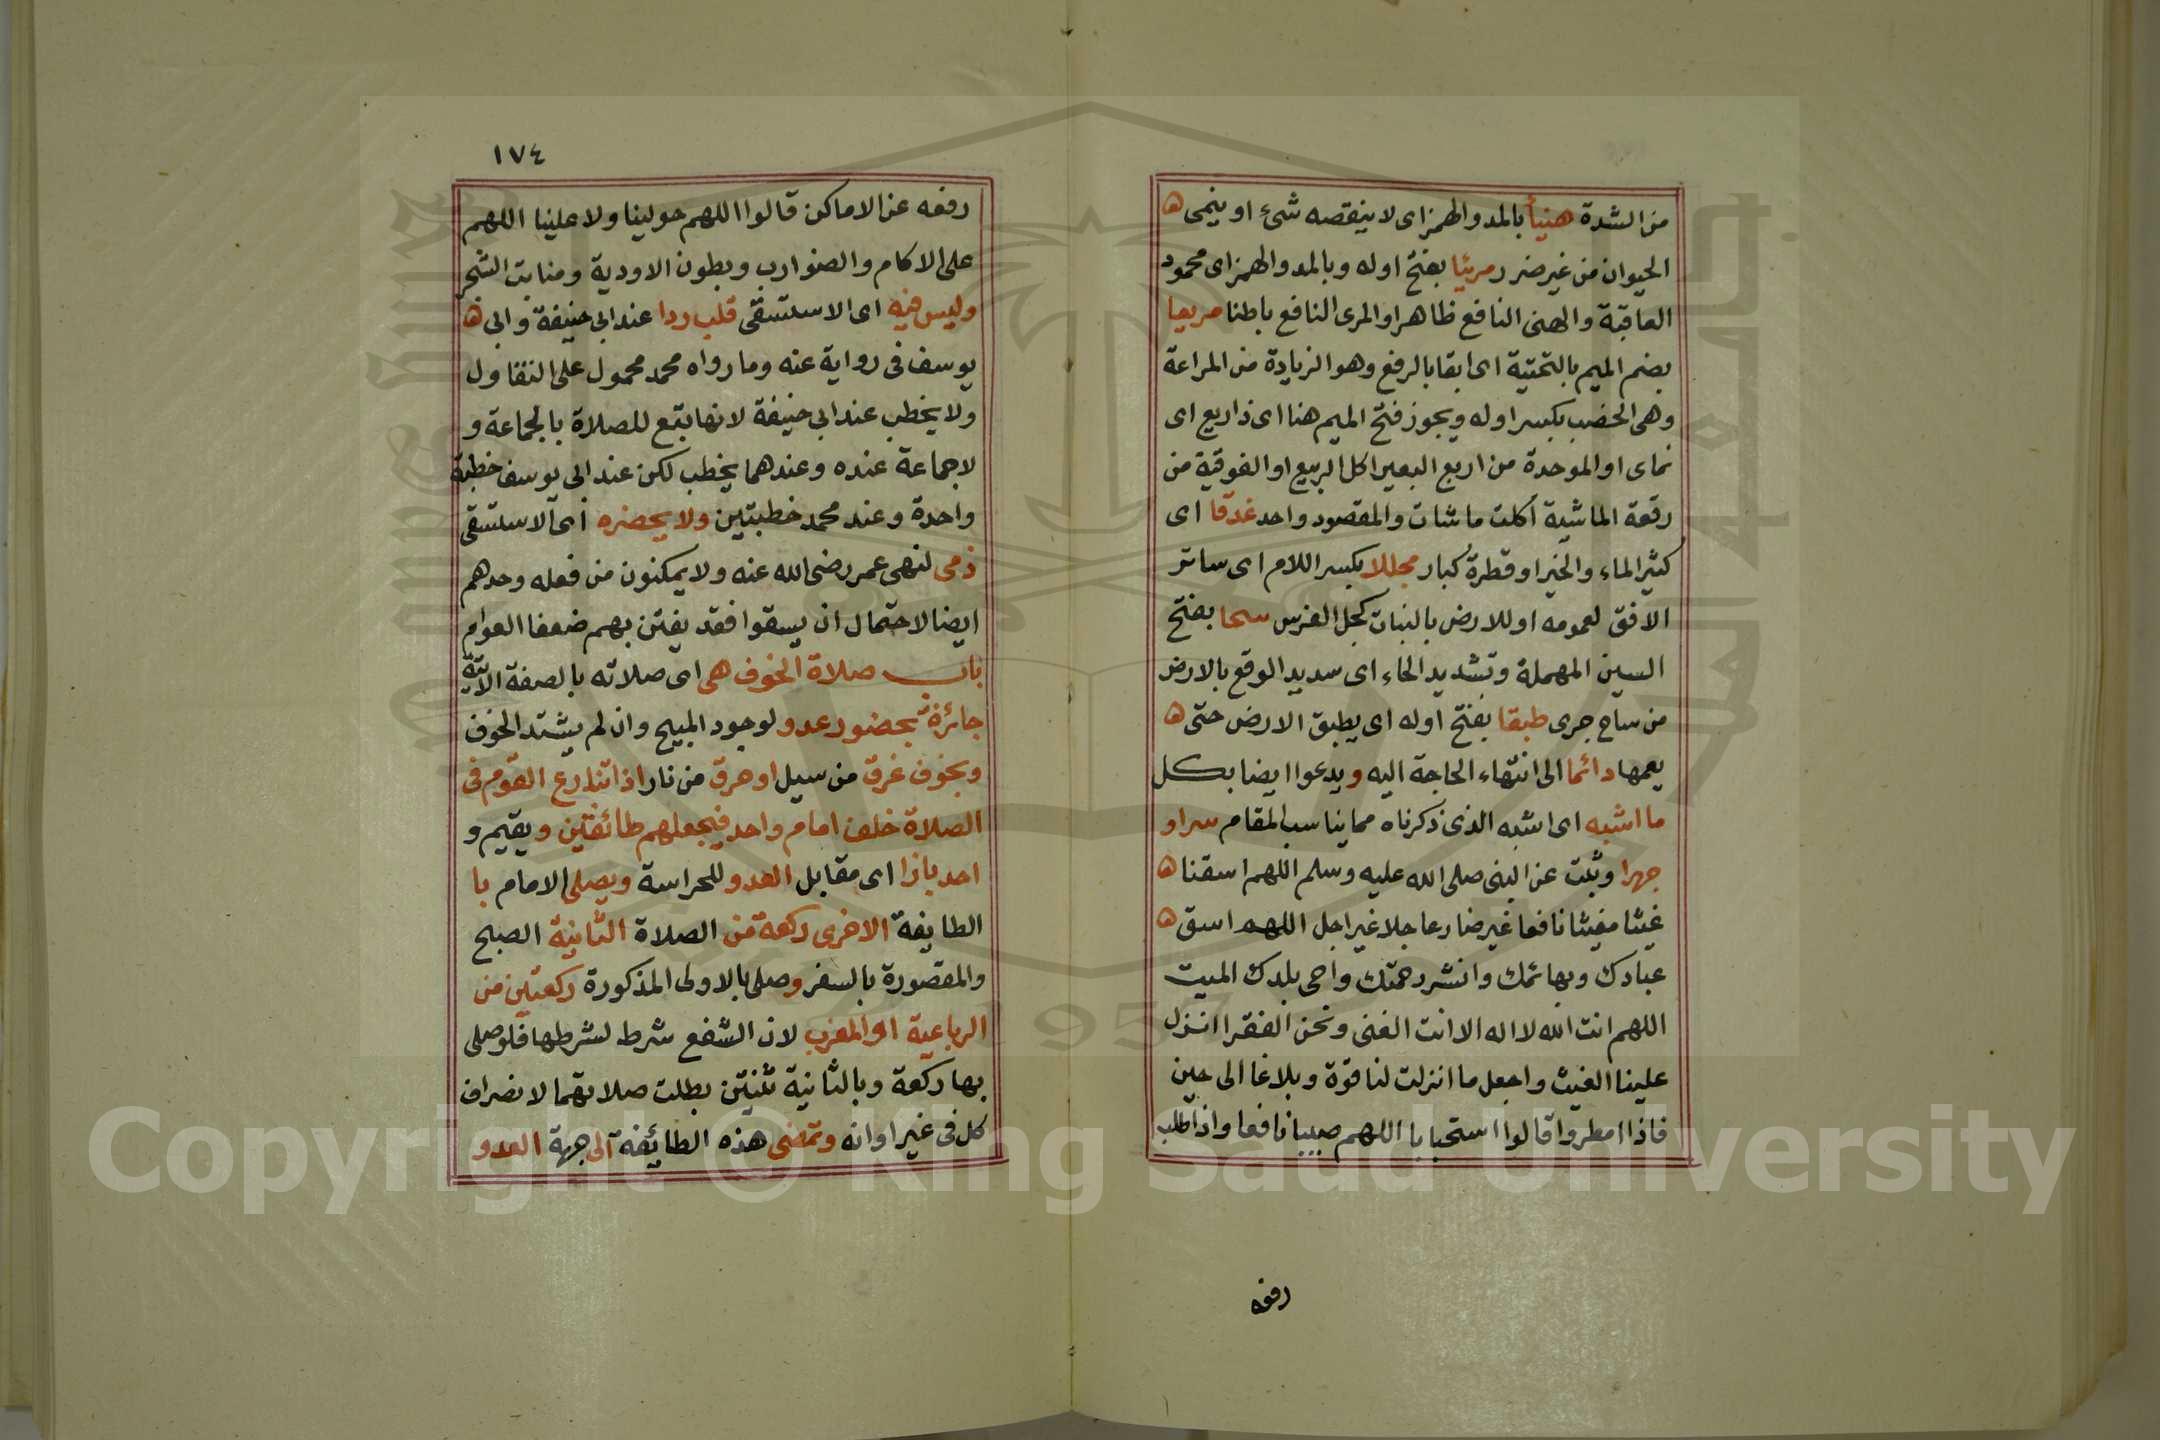 من الشدة هنيأ بالمد والهمز اى لا ينقصه شئ او ينمى ه
الحيوان من غير ضرر مريئا بفتح اوله وبالمد والهمز اى محمود
العاقبة والهنى النافع ظاهرا والمرى النافع باطنا مريعا
بضم الميم بالتحتية اى ابقا بالرفع وهو الزيادة من المراعة
وهى الخضب بكسر اوله ويجوز فتح الميم هنا اى ذا ريع اى
نماى او الموحدة من اربع البعير اكل الربيع او الفوقية من
رقعة الماشية أكلت ما شات والمقصود واحد غدقا اى
كثير الماء والخير او قطرة كبار مجللا بكسر اللام اى ساتر
الافق لعمومه او للارض بالنبات كجل الفرس سحا بفتح
السين المهملة وتشديد الحاء اى سديد الوقع بالارض
من ساح جرى طبقا بفتح اوله اى يطبق الارض حتى ه
يعمها دائما الى انتهاء الحاجة اليه ويدعوا ايضا بكل
ما اشبه اى اشبه الذى ذكرناه مما يناسب المقام سرا و
جهرا وثبت عن النبى صلى الله عليه وسلم اللهم اسقنا ه
غيثا مغيثا نافعا غير ضار عاجلا غير اجل اللهم اسق ه
عبادك وبهائمك وانشر رحمتك واحى بلدك الميت
اللهم انت الله لا اله الا انت الغنى ونحن الفقرا انزل
علينا الغيث واجعل ما انزلت لنا قوة وبلاغا الى حين
فاذا امطروا قالوا استحبابا اللهم صيبا نافعا واذا طلب
رفعه
١٧٤
رفعه عن الاماكن قالوا اللهم حولينا ولا علينا اللهم
على الاكام والضوارب وبطون الاودية ومنابت الشجر
وليس فيه اى الاستسقى قلب ردا عند ابى حنيفة وابى ه
يوسف فى رواية عنه وما رواه محمد محمول على التفاول
ولا يخطب عند ابى حنيفة لانها بتبع للصلاة بالجماعة و
لا جماعة عنده وعندهما يخطب لكن عند ابى يوسف خطبة
واحدة وعند محمد خطبتين ولا يحضره اى الاستسقى
ذمى لنهى عمر رضى الله عنه ولا يمكنون من فعله وحدهم
ايضا لاحتمال ان يسقوا فقد يفتن بهم ضعفا العوام
باب صلاة الخوف هى اى صلاته بالصفة الاتية
جائزة بحضور عدو لوجود المبيح وان لم يشتد الخوف
وبخوف غرق من سيل او حرق من نار اذا تنازع القوم فى
الصلاة خلف امام واحد فيجعلهم طائفتين ويقيم و
احد بازا اى مقابل العدو للحراسة ويصلى الامام با
الطايفة الاخرى ركعة من الصلاة الثانية الصبح
والمقصورة بالسفر وصلى بالاولى المذكورة ركعتين من
الرباعية او المغرب لان الشفع شرط لشرطها فلو صلى
بها ركعة وبالثانية ثنيتن بطلت صلاتهما لانصراف
كل فى غير اوانه وتمضى هذه الطايفة الى جهة العدو
Copyright © King Saud University